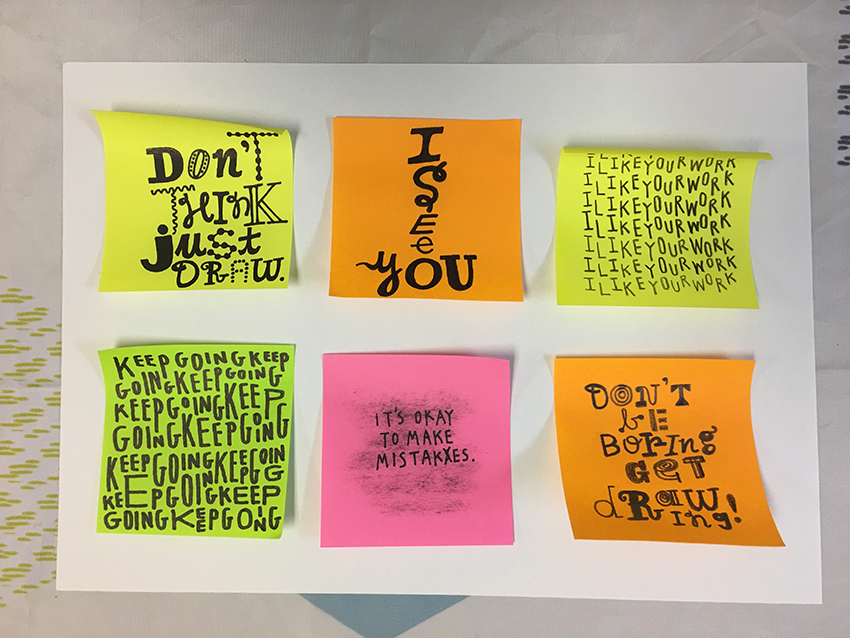 DON'T
THINK
jUSt
DRAW.
I
S
E
e
yOU
I LIKE YOUR WORK
I LIKE YOUR WORK
I LIKE YOUR WORK
I LIKE YOUR WORK
I LIKE YOUR WORK
I LIKE YOUR WORK
I LIKE YOUR WORK
KEEP GOING KEEP
GOING KEEP GOING
KEEP GOING KEEP
GOING KEEP GOING
KEEP GOING KEEP GOING
KEEP GOING KEEP
GOING KEEP GOING
IT'S OKAY
TO MAKE
MISTAKXES.
DON'T
bE
BORING
GET
dRAW
ING!